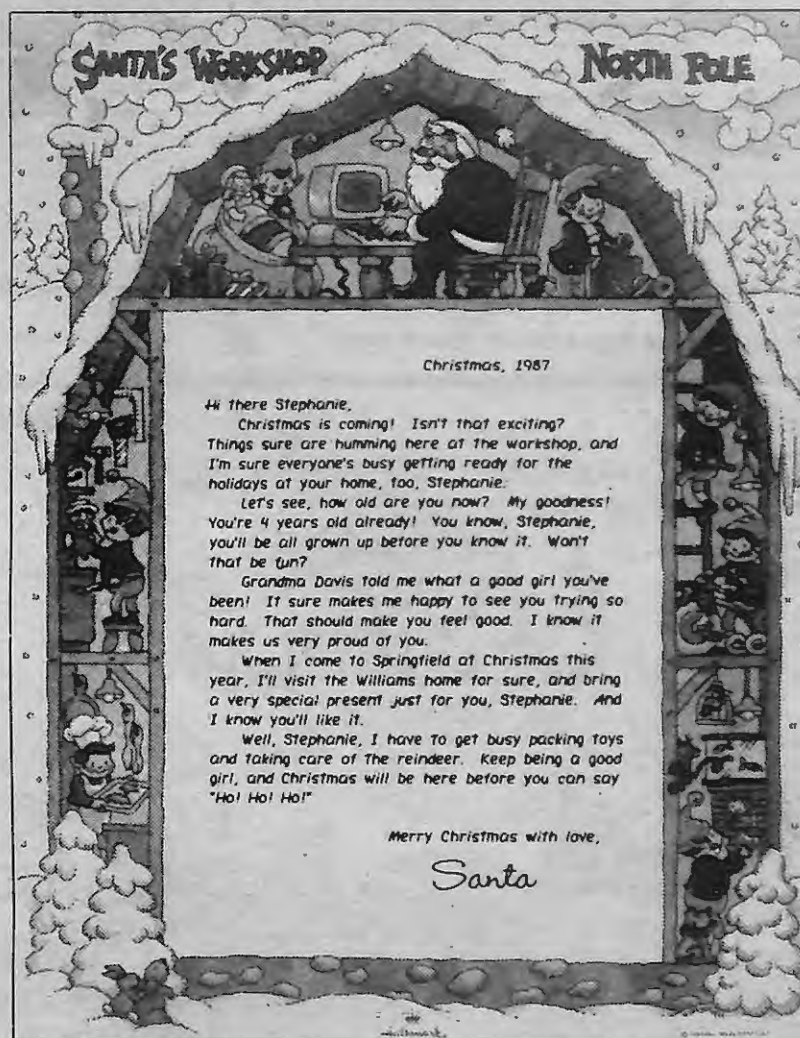 SANTA'S WORKSHOP
NORTH POLE
Christmas, 1987
Hi there Stephanie,
Christmas is coming! Isn't that exciting?
Things sure are humming here at the workshop, and
I'm sure everyone's busy getting ready for the
holidays at your home, too, Stephanie.
Let's see, how old are you now? My goodness!
You're 4 years old already! You know, Stephanie,
you'll be all grown up before you know it. Won't
that be fun?
Grandma Davis told me what a good girl you've
been! It sure makes me happy to see you trying so
hard. That should make you feel good. I know it
makes us very proud of you.
When I come to Springfield at Christmas this
year, I'll visit the Williams home for sure, and bring
a very special present just for you, Stephanie. And
I know you'll like it.
Well, Stephanie, I have to get busy packing toys
and taking care of the reindeer. Keep being a good
girl, and Christmas will be here before you can say
"Ho! Ho! Ho!"
Merry Christmas with love,
Santa
Hallmark